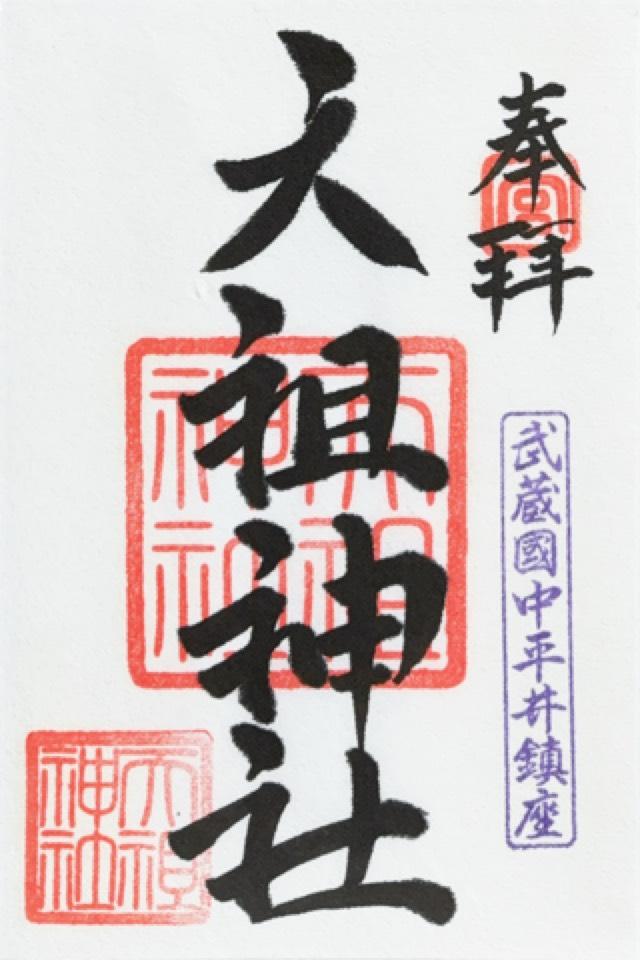 奉拝
武蔵國中平井鎮座
天祖神社
天祖
神社
天祖
神社